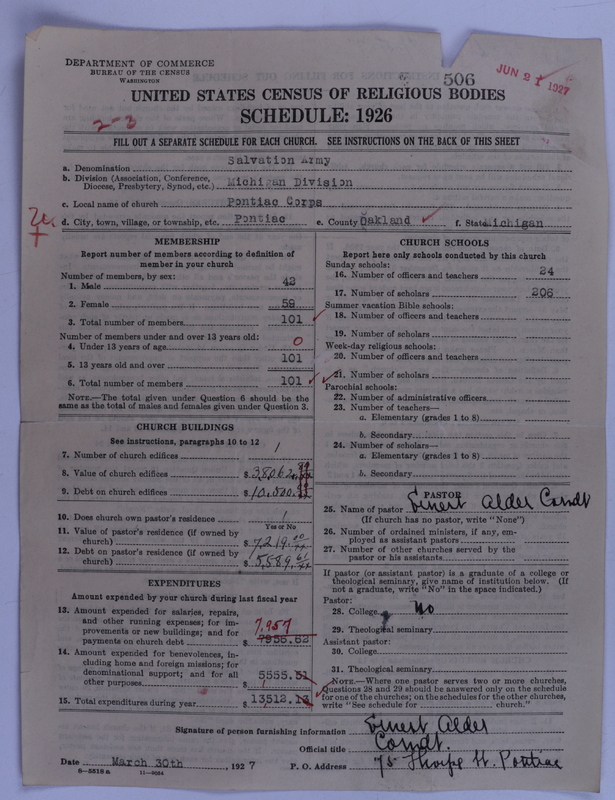 DEPARTMENT OF COMMERCE
BUREAU OF THE CENSUS
WASHINGTON
506
JUN 21 1927
UNITED STATES CENSUS OF RELIGIOUS BODIES
SCHEDULE: 1926
2-3
FILL OUT A SEPARATE SCHEDULE FOR EACH CHURCH. SEE INSTRUCTIONS ON THE BACK OF THIS SHEET
a. Denomination Salvation Army
b. Division (Association, Conference, Diocese, Presbytery, Synod, etc.) Michigan Division
c. Local name of church Pontiac Corps
d. City, town, village, or township, etc. Pontiac e. County Oakland f. State Michigan
MEMBERSHIP
Report number of members according to definition of
member in your church
Number of members, by sex:
1. Male 42
2. Female 59
3. Total number of members 101
Number of members under and over 13 years old:
4. Under 13 years of age 0
5. 13 years old and over 101
6. Total number of members 101
NOTE.—The total given under Question 6 should be
same as the total of males and females given under Question 3.
CHURCH BUILDINGS
See instructions, paragraphs 10 to 12
7. Number of church edifices 1
8. Value of church edifices $38,062
9. Debt on church edifices $10,500
10. Does church own pastor's residence 1
Yes or No
11. Value of pastor's residence (if owned by
church) $7,219.
12. Debt on pastor's residence (if owned by
church) $5,589.
EXPENDITURES
Amount expended by your church during last fiscal year
13. Amount expended for salaries, repairs,
and other running expenses; for im-
provements or new buildings; and for
payments on church debt $7956.62
7,957
14. Amount expended for benevolences, in-
cluding home and foreign missions; for
denominational support; and for all
other purposes $5555.51
15. Total expenditures during year $13512.13
CHURCH SCHOOLS
Report here only schools conducted by this church
Sunday schools:
16. Number of officers and teachers 24
17. Number of scholars 206
Summer vacation Bible schools:
18. Number of officers and teachers
19. Number of scholars
Week-day religious schools:
20. Number of officers and teachers
21. Number of scholars
Parochial schools:
22. Number of administrative officers
23. Number of teachers—
a. Elementary (grades 1 to 8)
b. Secondary
24. Number of scholars—
a. Elementary (grades 1 to 8)
b. Secondary
PASTOR
25. Name of pastor Ernest Alder Comdt
(If church has no pastor, write "None")
26. Number of ordained ministers, if any, em-
ployed as assistant pastors
27. Number of other churches served by the
pastor or his assistants
If pastor (or assistant pastor) is a graduate of a college or
theological seminary, give name of institution below. (If
not a graduate, write "No" in the space indicated.)
Pastor:
28. College No
29. Theological seminary
Assistant pastor:
30. College
31. Theological seminary
NOTE.—Where one pastor serves two or more churches,
Questions 28 and 29 should be answered only on the schedule
for one of the churches; on the schedules for the other churches,
write "See schedule for church."
Signature of person furnishing information Ernest Alder
Official title Comdt.
Date March 30th, 1927 P. O. Address 75 Thorpe St. Pontiac
8-5519a 11-9024